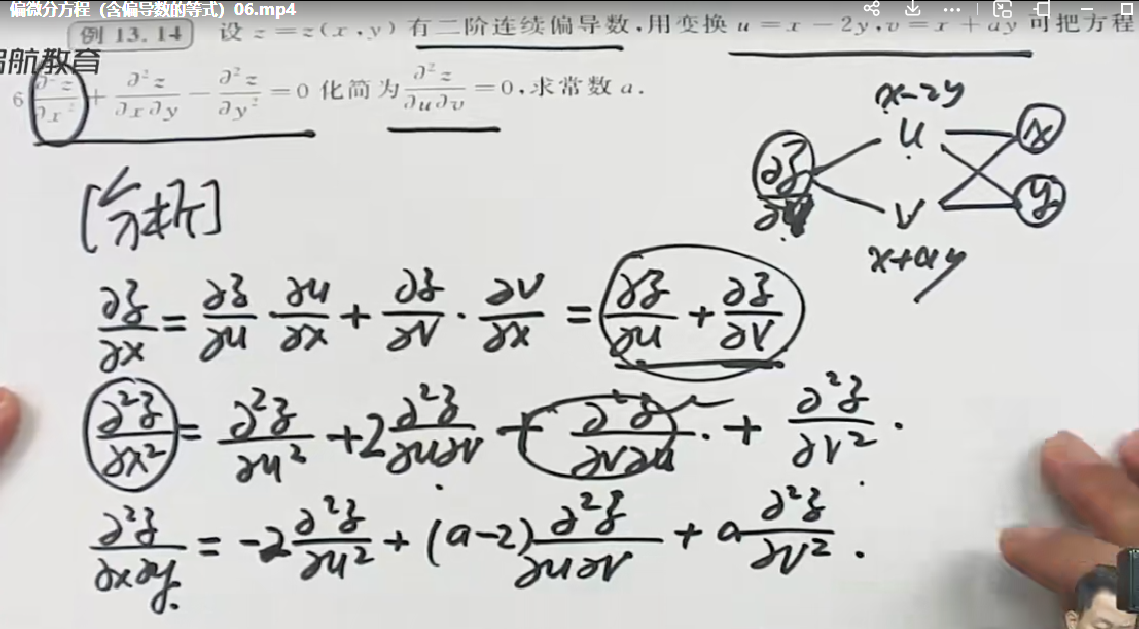 偏微分方程（含偏导数的等式）06.mp4
例 13.14 设 z=z(x,y) 有二阶连续偏导数,用变换 u=x-2y,v=x+ay 可把方程
航教育
6 ∂²z/∂x² + ∂²z/∂x∂y - ∂²z/∂y² =0 化简为 ∂²z/∂u∂v =0,求常数 a.
x-2y
u x
∂z/∂u
v y
x+ay
[分析]
∂z/∂x = ∂z/∂u · ∂u/∂x + ∂z/∂v · ∂v/∂x = ∂z/∂u + ∂z/∂v
∂²z/∂x² = ∂²z/∂u² + 2 ∂²z/∂u∂v + ∂²z/∂v∂u · + ∂²z/∂v² .
∂²z/∂x∂y = -2 ∂²z/∂u² + (a-2) ∂²z/∂u∂v + a ∂²z/∂v² .